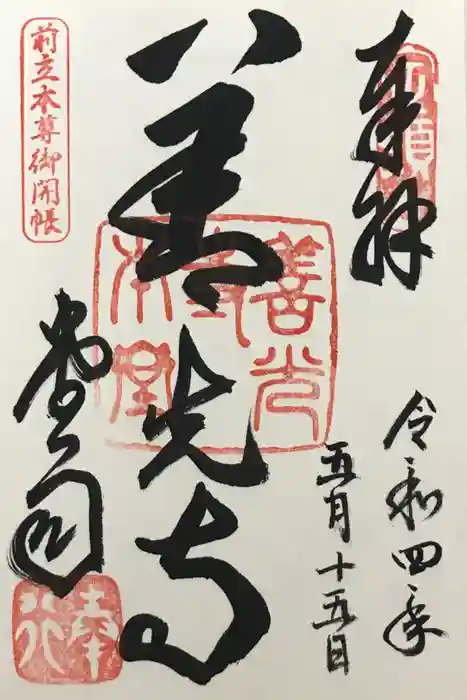 奉拝
令和四年
五月十五日
善光寺
善光寺本堂
堂司
奉行
前立本尊御開帳